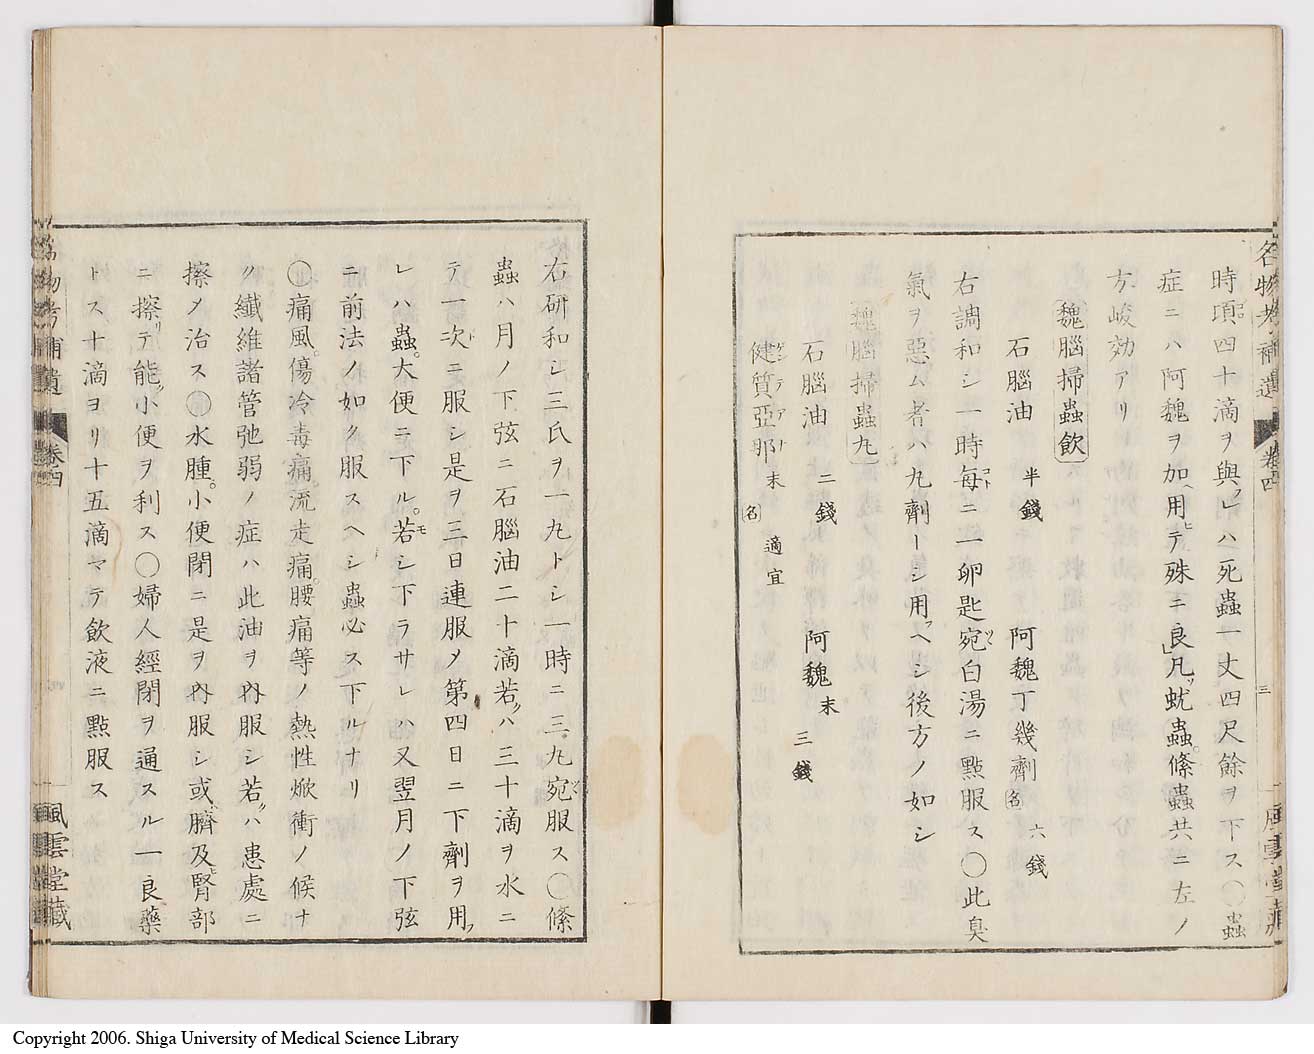 時頃四十滴ヲ與レハ死蟲一丈四尺餘ヲ下ス〇蟲
症ニハ阿魏ヲ加ヘ用ヒテ殊ニ良」凡ソ蚘蟲。絛蟲共ニ左ノ
方峻効アリ
魏腦掃蟲飲
石腦油 半錢 阿魏丁幾劑 名 六錢
右調和シ一時每ニ二卵匙宛白湯ニ點服ス〇此臭
氣ヲ惡ム者ハ丸劑ーシ用ヘシ後方ノ如シ
魏腦掃蟲丸
石腦油 二錢 阿魏末 三錢
健質亞那末 名 適宜
名物考補遺 卷四 三 風雲堂藏
右研和シ三氏ヲ一丸トシ一時ニ三丸宛服ス〇絛
蟲ハ月ノ下弦ニ石腦油二十滴若ハ三十滴ヲ水ニ
テ一次ニ服シ是ヲ三日連服メ第四日ニ下劑ヲ用フ
レハ蟲。大便ニ下ル。若シ下ラサレハ又翌月ノ下弦
ニ前法ノ如ク服スヘシ蟲必ス下ルナリ
〇痛風。傷冷毒痛。流走痛。腰痛等ノ熱性焮衝ノ候ナ
ク纖維諸管弛弱ノ症ハ此油ヲ內服シ若ハ患處ニ
擦メ治ス〇水腫。小便閉ニ是ヲ內服シ或ハ臍及ヒ腎部
ニ擦リテ能ク小便ヲ利ス〇婦人經閉ヲ通スル一良藥
トス十滴ヨリ十五滴マテ飲液ニ點服ス
名物考補遺 卷四 風雲堂藏